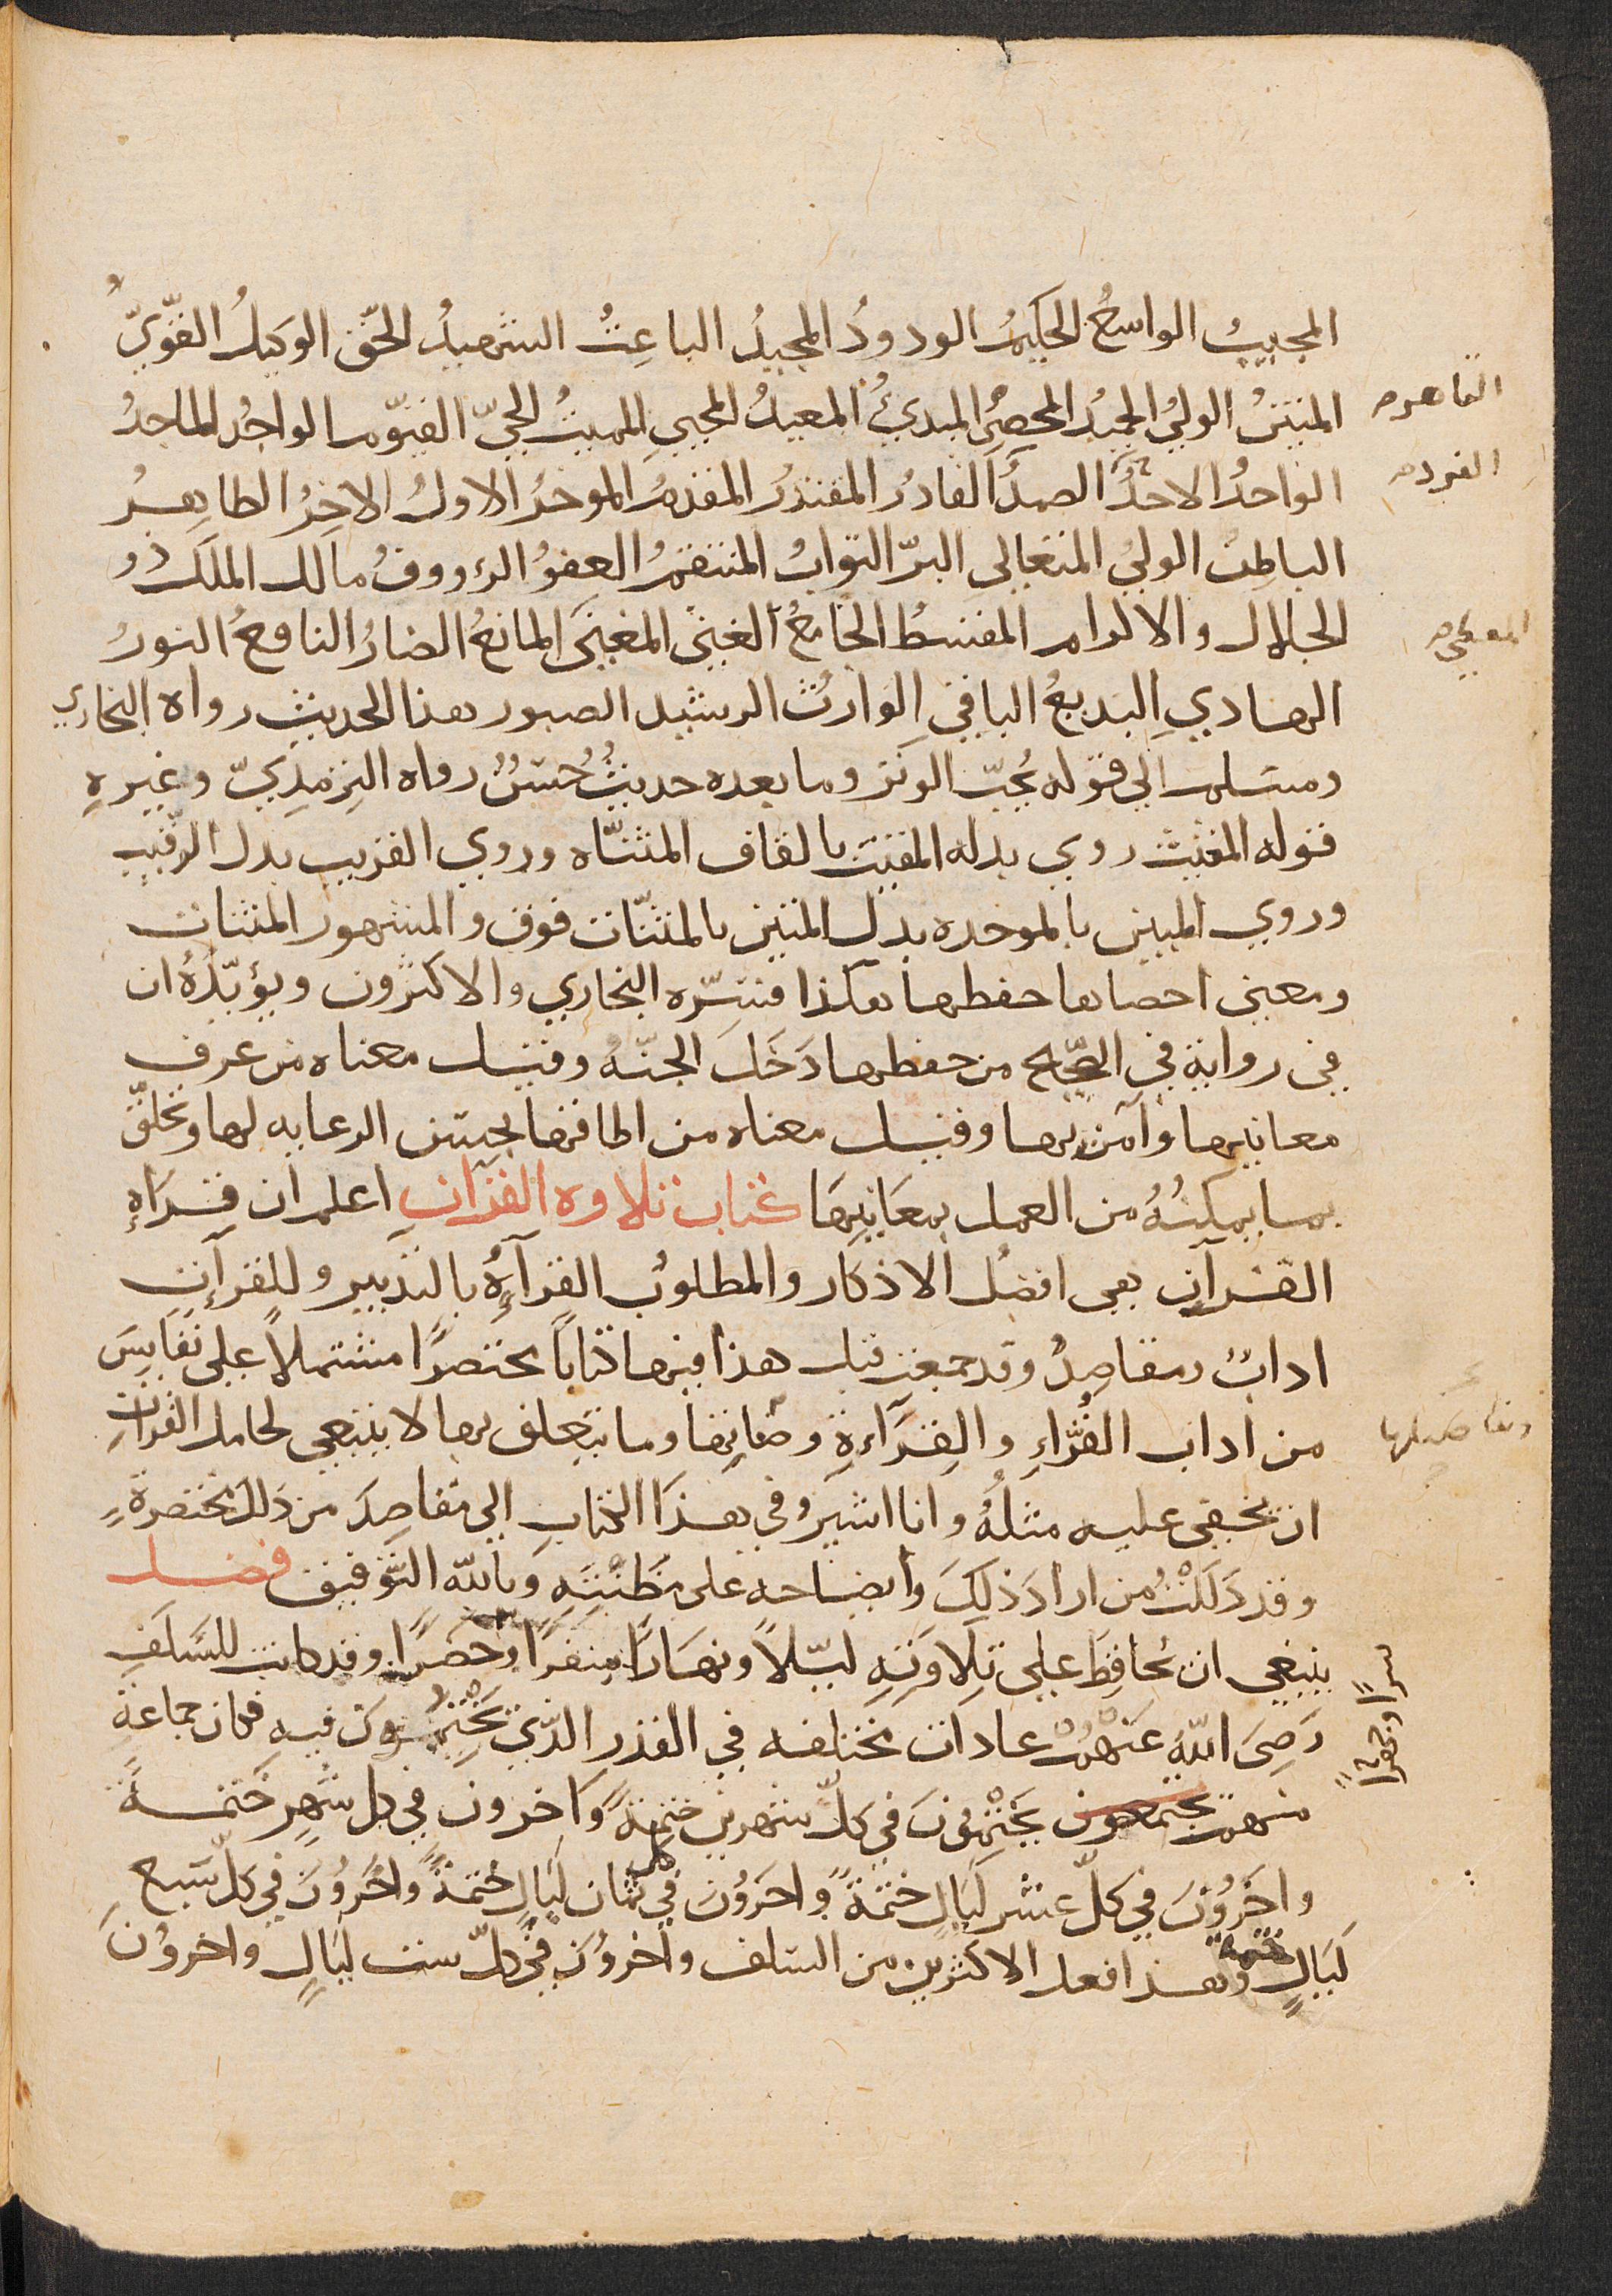 المجيبُ الواسعُ الحكيمُ الودودُ المجيدُ الباعِثُ الشهيدُ الحقّ الوكيلُ القويّ
المتينُ الوليُّ الحميدُ المحصِي المبدئُ المعيدُ المحيي المميتُ الحيّ القيّوم الواجدُ الماجدُ
القاهر
الواحدُ الاحدُ الصمدُ القادرُ المقتدرُ المقدمُ الموخرُ الاولُ الاخِرُ الظاهِرُ
الفرد
الباطِنُ الوليُ المتعالى البرّ التوابُ المنتقمُ العفوُ الرءووفُ مالك الملك ذُو
الجلال والاكرام المقسطُ الجامعُ الغنيُ المغنيَ المانعُ الضارُ النافعُ النورُ
المعطي
الهاديِ البديعُ الباقيِ الوارثُ الرشيد الصبور هذا الحديث رواه البخاري
ومسلم الي قوله يُحبّ الوتر وما بعده حديثُ حُسَنٌ رواه الترمذيّ وغيرهِ
قوله المغيث روي بدله المقيت بالقاف المثنّاه وروي القريب بدل الرقيب
وروي المبين بالموحده بدل المتين بالمثنّات فوق والمشهور المثنات
ومعني احصاها حفظها هكذا فسّره البخاري والاكثرون ويؤيّدهُ ان
في رواية في الصّحيح من حفظها دَخَلَ الجنّهُ وقيل معناه من عرف
معانيها وآمن بها وقيل معناه من اطاقها بحسن الرعايه لها وتخلّق
بما يمكنُهُ من العمل بمعَانيهَا كتاب تلاوه القرآن اعلم ان قرَاةِ
القرآن هي افضلُ الاذكار والمطلوبُ القرآةُ بالتدبير وللقرآن
ادابٌ ومقاصِدٌ وقد جمعت قبل هذا فيها كتاباً مختصرًا مشتملاً علي نفايسَ
من اداب القُرّاءِ والقِرَاءةِ وصفاتِها وما يتعلق بها لا ينبغي لحامل القرآنِ
وتفاصيلها
ان يخفي عليه مثلُهُ وانا اشيرُ في هذَا الكتابِ الي مقاصِدَ من ذلك مختصرةٍ
وقد دَلَلْتُ من ارادَ ذلِكَ وايضاحه على مَظِنّتِهِ وباللّه التَّوفيق فصل
ينبغي ان يُحافِظَ علي تِلاَوَتِهِ ليلاً ونهَارًا سفرًا وحضرًا وقد كانت للسَّلَفِ
سرا وجهرا
رَضِيَ اللّهُ عَنْهُمْ عادات مختلفه في القدر الذي يَخْتِمُونَ فيه فكان جماعةً
منهم يجتمعون يَخْتِمُونَ في كلّ شهرين ختمةً وَاخرون في كل شَهرٍ خَتمةً
واخَرُونَ في كلّ عشر لَيالٍ ختمَةً واخرُونَ في كل ثمان لَيالٍ ختمةً واخَرُونَ في كلّ سَبع
لَيَالٍ ختمة وهذا فعل الاكثرين من السّلف واخرُونَ في كلّ ست لَيَالٍ واخرُونَ